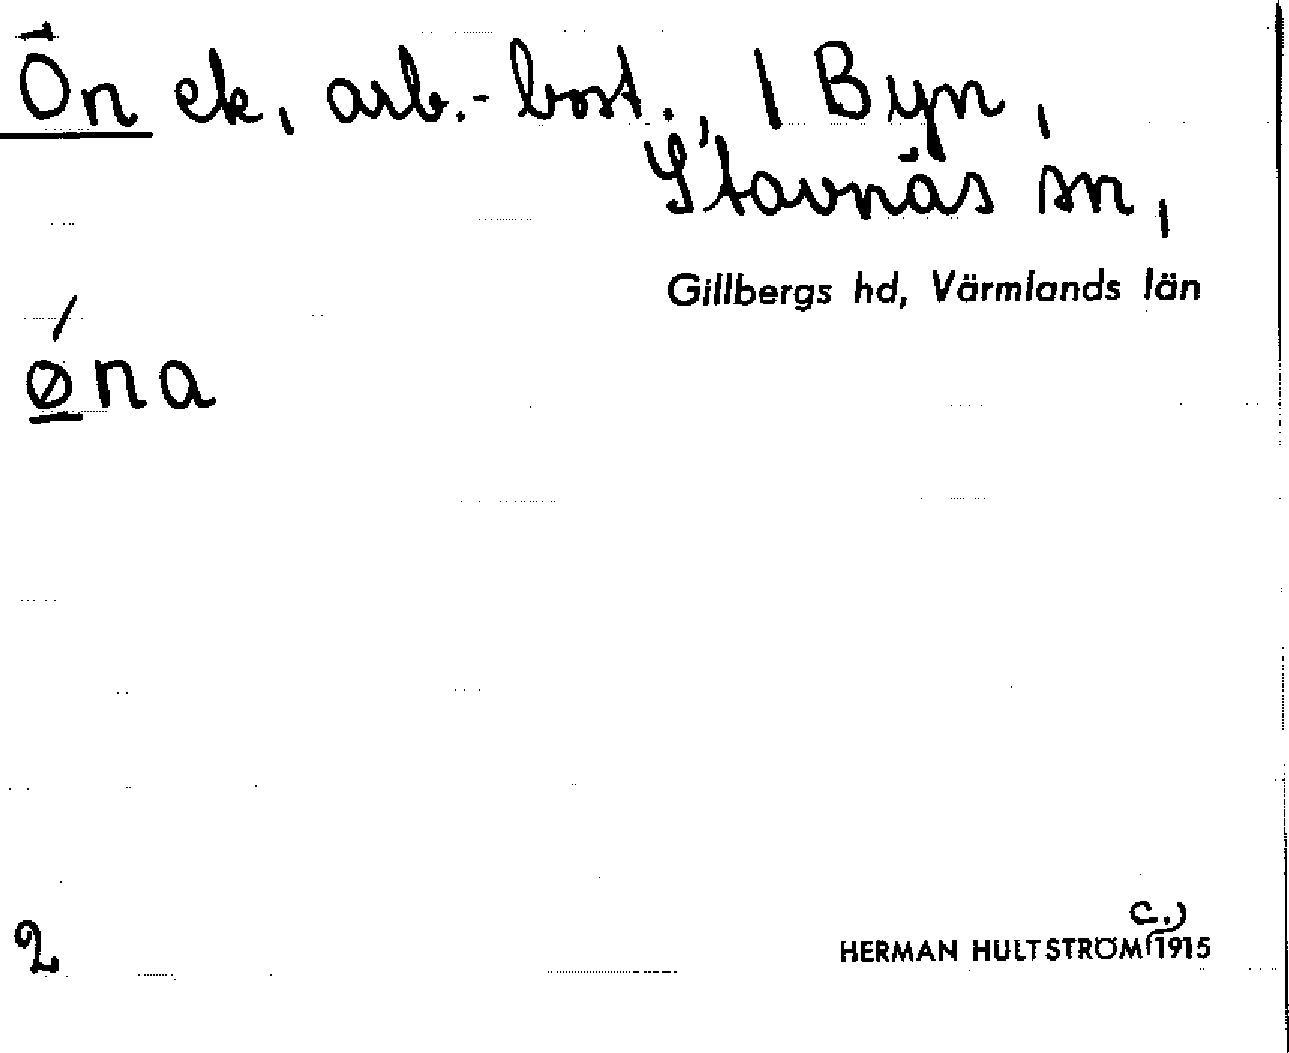 Ön ek, arb.-bost., 1 Byn,
Stavnäs sn,
Gillbergs hd, Värmlands län
øna
2
c.)
HERMAN HULTSTRÖM 1915